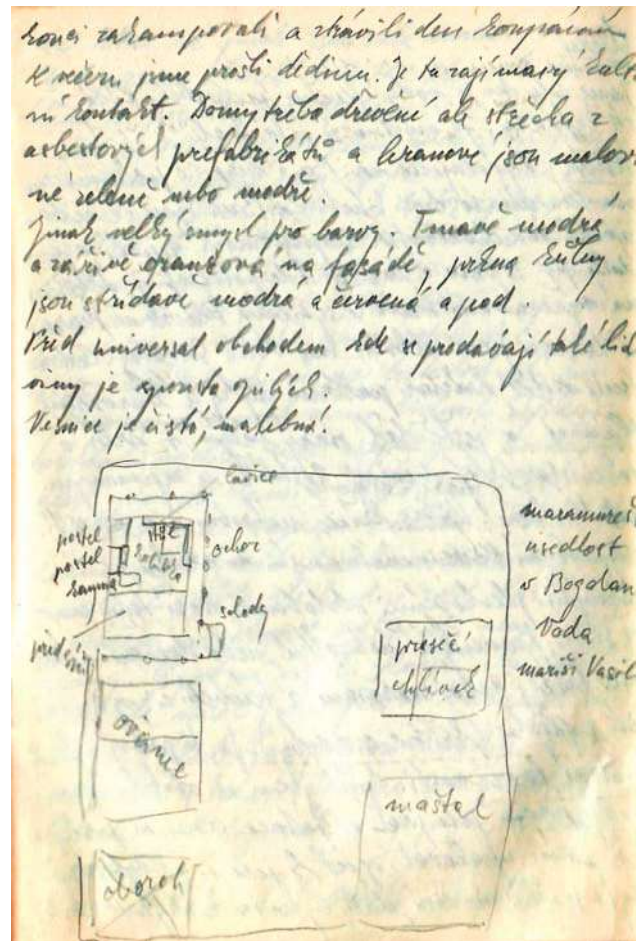 konci zakampovali a strávili den koupáním
K večeru jsme prošli dědinu. Je tu zajímavý kult
ní kontakt. Domy třeba dřevěné ale střecha z
asbestových prefabrikátů a hranově jsou malov
né zeleně nebo modře.
Jinak velký smysl pro barvy. Tmavě modrá
a zářivě oranžová na fasádě, prkna
jsou střídavě modrá a červená a pod.
Před universal obchodem kde se prodávají také
oviny je spousta opilých.
Vesnice je čistá, malebná.
lavice
postel
stůl
postel
ochoz
kamna
schody
předsíň
ovčinec
oboroh
prasečí
chlívek
maštal
maramureš
usedlost
v Bogdan
Voda